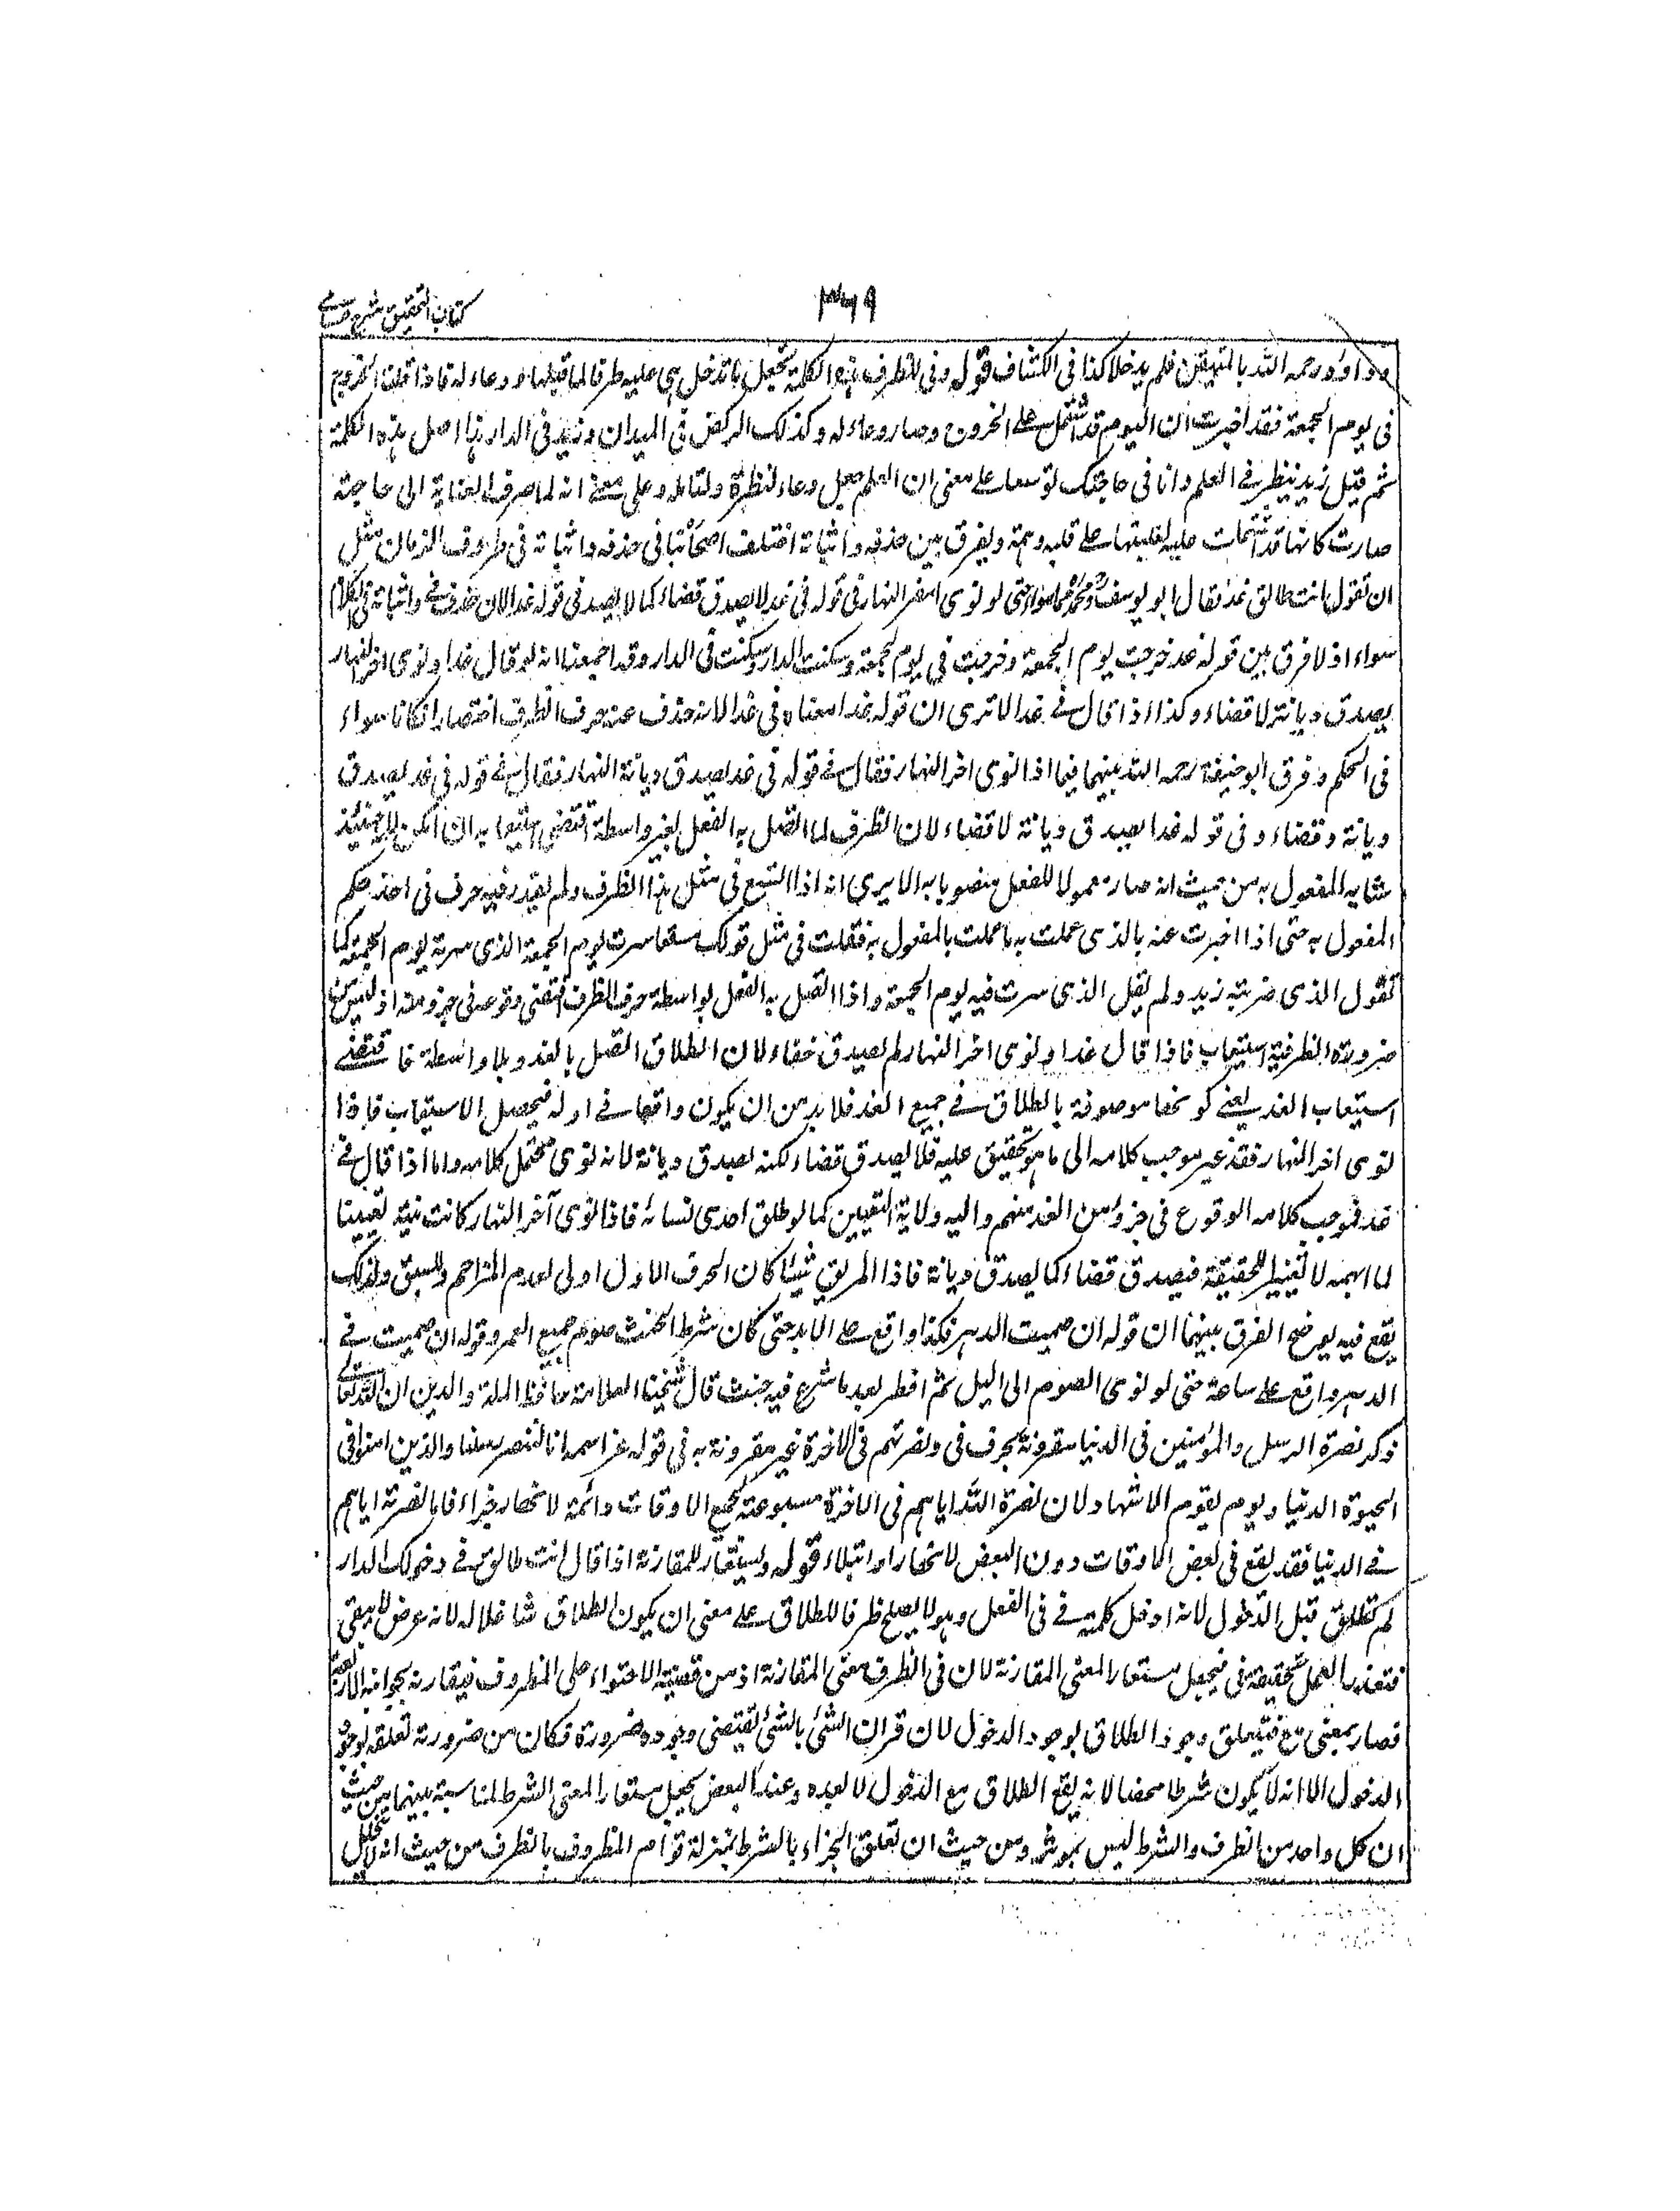 كتاب التحقيق شرح حسامي
٣٦٩
وداؤد رحمه الله بالمتيقن فلم يدخلا كذا في الكشاف قوله وفي للظرف هذه الكلمة تجعل ما تدخل هي عليه ظرفا لما قبلها و وعاء له فاذا قلت الخروج
في يوم الجمعة فقد اخبرت ان اليوم قد اشتمل على الخروج وصار وعاء له وكذلك الركض في الميدان وزيد في الدار هذا اصل هذه الكلمة
ثم قيل زيد ينظر في العلم وانا في حاجتك توسعا على معنى ان العلم جعل وعاء لنظره وتامله وعلى معنى انه لما صرف العناية الى حاجته
صارت كانها قد اشتملت عليه لغلبتها على قلبه وهمته ويفرق بين حذفه واثباته اختلف اصحابنا في حذفه واثباته في ظروف الزمان مثل
ان تقول انت طالق غدا فقال ابو يوسف ومحمد هما سواء حتى لو نوى اخر النهار في قوله في غد لا يصدق قضاء كما لا يصدق في قوله غدا لان حذف في واثباته في الكلام
سواء اذ لا فرق بين قوله خرجت يوم الجمعة وخرجت في يوم الجمعة وسكنت الدار وسكنت في الدار وقد اجمعنا انه لو قال غدا ونوى اخر النهار
يصدق ديانة لا قضاء وكذا اذا قال في غد الا ترى ان قوله غدا معناه في غد الا انه حذف عنه حرف الظرف اختصارا فكانا سواء
في الحكم وفرق ابو حنيفة رحمه الله بينهما فيما اذا نوى اخر النهار فقال في قوله في غد يصدق ديانة النهار فقال في قوله في غد يصدق
ديانة وقضاء وفي قوله غدا يصدق ديانة لا قضاء لان الظرف لما اتصل به الفعل بغير واسطة اقتضى استيعابه ان امكن لانه حينئذ
شابه المفعول به من حيث انه صار معمولا للفعل منصوبا به الا يرى انه اذا اتسع في مثل هذا الظرف ولم يقدر فيه حرف في اخذ حكم
المفعول به حتى اذا اخبرت عنه بالذي عملت به ما عملت بالمفعول به فقلت في مثل قولك سرت يوم الجمعة الذي سرته يوم الجمعة كما
تقول الذي ضربته زيد ولم يقل الذي سرت فيه يوم الجمعة واذا اتصل به الفعل بواسطة حرف الظرف اقتضى وقوعه في جزء منه اذ ليس من
ضرورة الظرفية استيعاب فاذا قال غدا ونوى اخر النهار لم يصدق قضاء لان الطلاق اتصل بالغد بلا واسطة فاقتضى
استيعاب الغد يعني كونها موصوفة بالطلاق في جميع الغد فلا بد من ان يكون واقعا في اوله فيحصل الاستيعاب فاذا
نوى اخر النهار فقد غير موجب كلامه الى ما هو تخفيف عليه فلا يصدق قضاء لكنه يصدق ديانة لانه نوى محتمل كلامه واما اذا قال في
غد فموجب كلامه الوقوع في جزء من الغد مبهم واليه ولاية التعيين كما لو طلق احدى نسائه فاذا نوى آخر النهار كانت نيته تعيينا
لما ابهمه لا تغييرا للحقيقة فيصدق قضاء كما يصدق ديانة فاذا لم ينو شيئا كان الجزء الاول اولى لعدم المزاحم والسبق ولذلك
يقع فيه يوضح الفرق بينهما ان قوله ان صمت الدهر فكذا واقع على الابد حتى كان شرط الحنث صوم جميع العمر وقوله ان صمت في
الدهر واقع على ساعة حتى لو نوى الصوم الى الليل ثم افطر بعد ما شرع فيه حنث قال شيخنا العلامة حافظ الملة والدين ان الله تعالى
ذكر نصرة الرسل والمؤمنين في الدنيا مقرونة بحرف في ونصرتهم في الاخرة غير مقرونة به في قوله عز اسمه انا لننصر رسلنا والذين امنوا في
الحيوة الدنيا ويوم يقوم الاشهاد لان نصرة الله اياهم في الاخرة مستوعبة لجميع الاوقات دائمة لانها دار جزاء فاما نصرته اياهم
في الدنيا فقد تقع في بعض الاوقات دون البعض لانها دار ابتلاء قوله ويستعار للمقارنة اذا قال انت طالق في دخولك الدار
لم تطلق قبل الدخول لانه ادخل كلمة في في الفعل وهو لا يصلح ظرفا للطلاق على معنى ان يكون الطلاق شاغلا له لانه عرض لا يبقى
فتعذر العمل بحقيقة في فيجعل مستعارا لمعنى المقارنة لان في الظرف معنى المقارنة اذ من قضية الاحتواء على المظروف فيقارنه بجوانبه الاربعة
فصار بمعنى مع فيتعلق وجود الطلاق بوجود الدخول لان قران الشئ بالشئ يقتضي وجوده ضرورة فكان من ضرورته تعلقه بوجود
الدخول الا انه لا يكون شرطا محضا لانه يقع الطلاق مع الدخول لا بعده وعند البعض يجعل مستعارا لمعنى الشرط لمناسبة بينهما من حيث
ان كل واحد من الظرف والشرط ليس بموثر ومن حيث ان تعلق الجزاء بالشرط بمنزلة قوام المظروف بالظرف من حيث انه لا